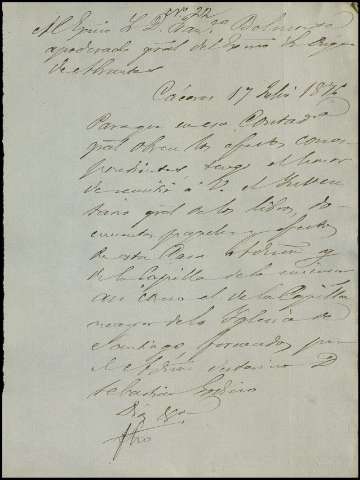 nº 22
Al Excmo Sr D.
apoderado gral del Excmo Sr Duque
de Abrantes
Cáceres 17 Julio 187
Para que en esa Contadª
gral obren los efectos corres
pondientes, tengo el honor
de remitir á V. el Inven
tario gral de los libros, do
cumentos papeles y efectos
de esta Casa y
de la Capilla de la misma
asi como el de la Capilla
mayor de la Yglesia de
Santiago formados por
el Admor interino D
Sebastian Godino
Dios